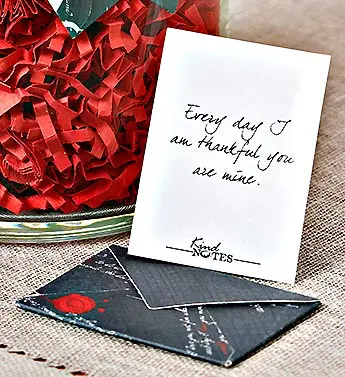 Every day I
am thankful you
are mine.
Kind
NOTES